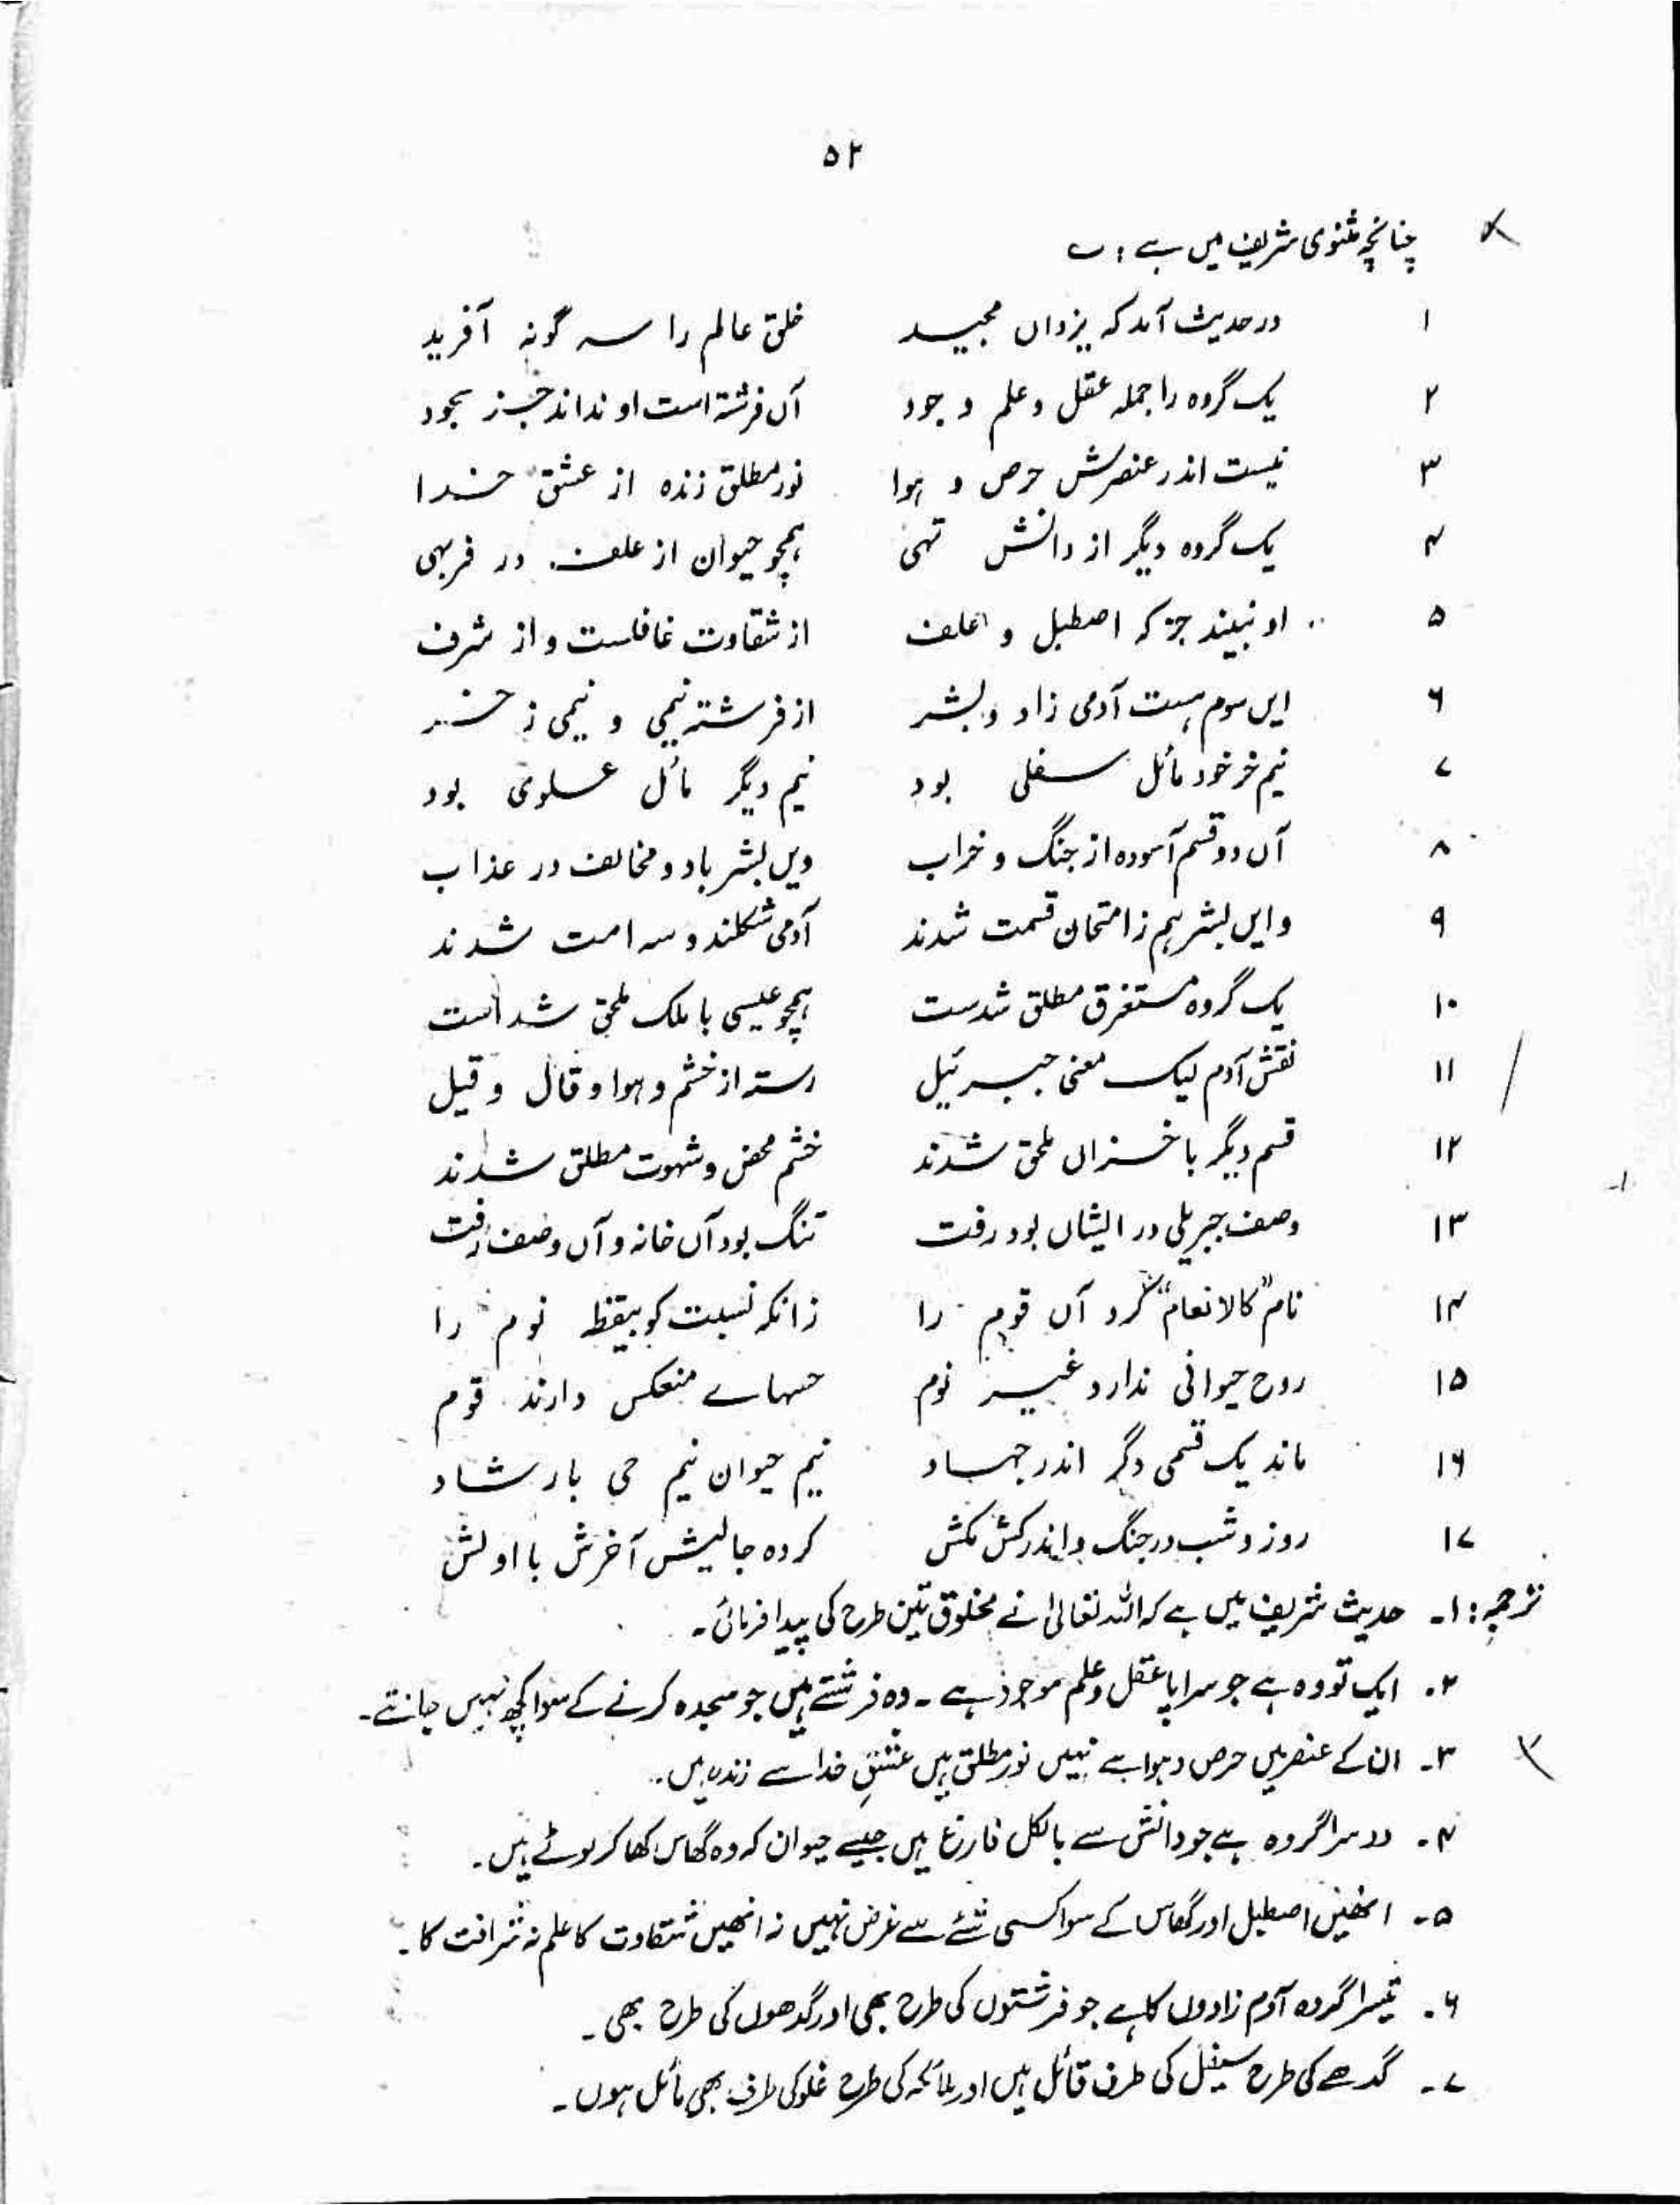 ۵۲
چنانچہ مثنوی شریف میں ہے : ؎
۱ در حدیث آمد کہ یزداں مجید خلق عالم را سہ گونہ آفرید
۲ یک گروہ را جملہ عقل و علم و جود آں فرشتہ است او نداند جز سجود
۳ نیست اندر عنصرش حرص و ہوا نور مطلق زندہ از عشق خدا
۴ یک گروہ دیگر از دانش تہی ہمچو حیوان از علف در فربہی
۵ او نبیند جز کہ اصطبل و علف از شقاوت غافلست و از شرف
۶ ایں سوم ہست آدمی زاد و بشر از فرشتہ نیمی و نیمی ز خر
۷ نیم خر خود مائل سفلی بود نیم دیگر مائل علوی بود
۸ آں دو قسم آسودہ از جنگ و خراب ویں بشر باد و مخالف در عذاب
۹ و ایں بشر ہم ز امتحان قسمت شدند آدمی شکلند و سہ امت شدند
۱۰ یک گروہ مستغرق مطلق شدست ہمچو عیسی با ملک ملحق شد است
۱۱ نقش آدم لیک معنی جبرئیل رستہ از خشم و ہوا و قال و قیل
۱۲ قسم دیگر با خراں ملحق شدند خشم محض و شہوت مطلق شدند
۱۳ وصف جبریلی در ایشاں بود رفت تنگ بود آں خانہ و آں وصف رفت
۱۴ نام "کالانعام" کرد آں قوم را زانکہ نسبت کو بیقظہ نوم را
۱۵ روح حیوانی ندارد غیر نوم حسہاے منعکس دارند قوم
۱۶ ماند یک قسمی دگر اندر جہاد نیم حیوان نیم حی بارشاد
۱۷ روز و شب در جنگ و اندر کش مکش کردہ چالیش آخرش با اولش
ترجمہ : ۱۔ حدیث شریف میں ہے کہ اللہ تعالیٰ نے مخلوق تین طرح کی پیدا فرمائی۔
۲۔ ایک تو وہ ہے جو سراپا عقل و علم موجود ہے۔ وہ فرشتے ہیں جو سجدہ کرنے کے سوا کچھ نہیں جانتے۔
۳۔ ان کے عنصر میں حرص و ہوا ہے نہیں نور مطلق ہیں عشقِ خدا سے زندہ ہیں۔
۴۔ دوسرا گروہ ہے جو دانش سے بالکل فارغ ہیں جیسے حیوان کہ وہ گھاس کھا کر موٹے ہیں۔
۵۔ انھیں اصطبل اور گھاس کے سوا کسی شئے سے غرض نہیں نہ انھیں شقاوت کا علم نہ شرافت کا۔
۶۔ تیسرا گروہ آدم زادوں کا ہے جو فرشتوں کی طرح بھی اور گدھوں کی طرح بھی۔
۷۔ گدھے کی طرح سفل کی طرف قائل ہیں اور ملائکہ کی طرح علو کی طرف بھی مائل ہوں۔